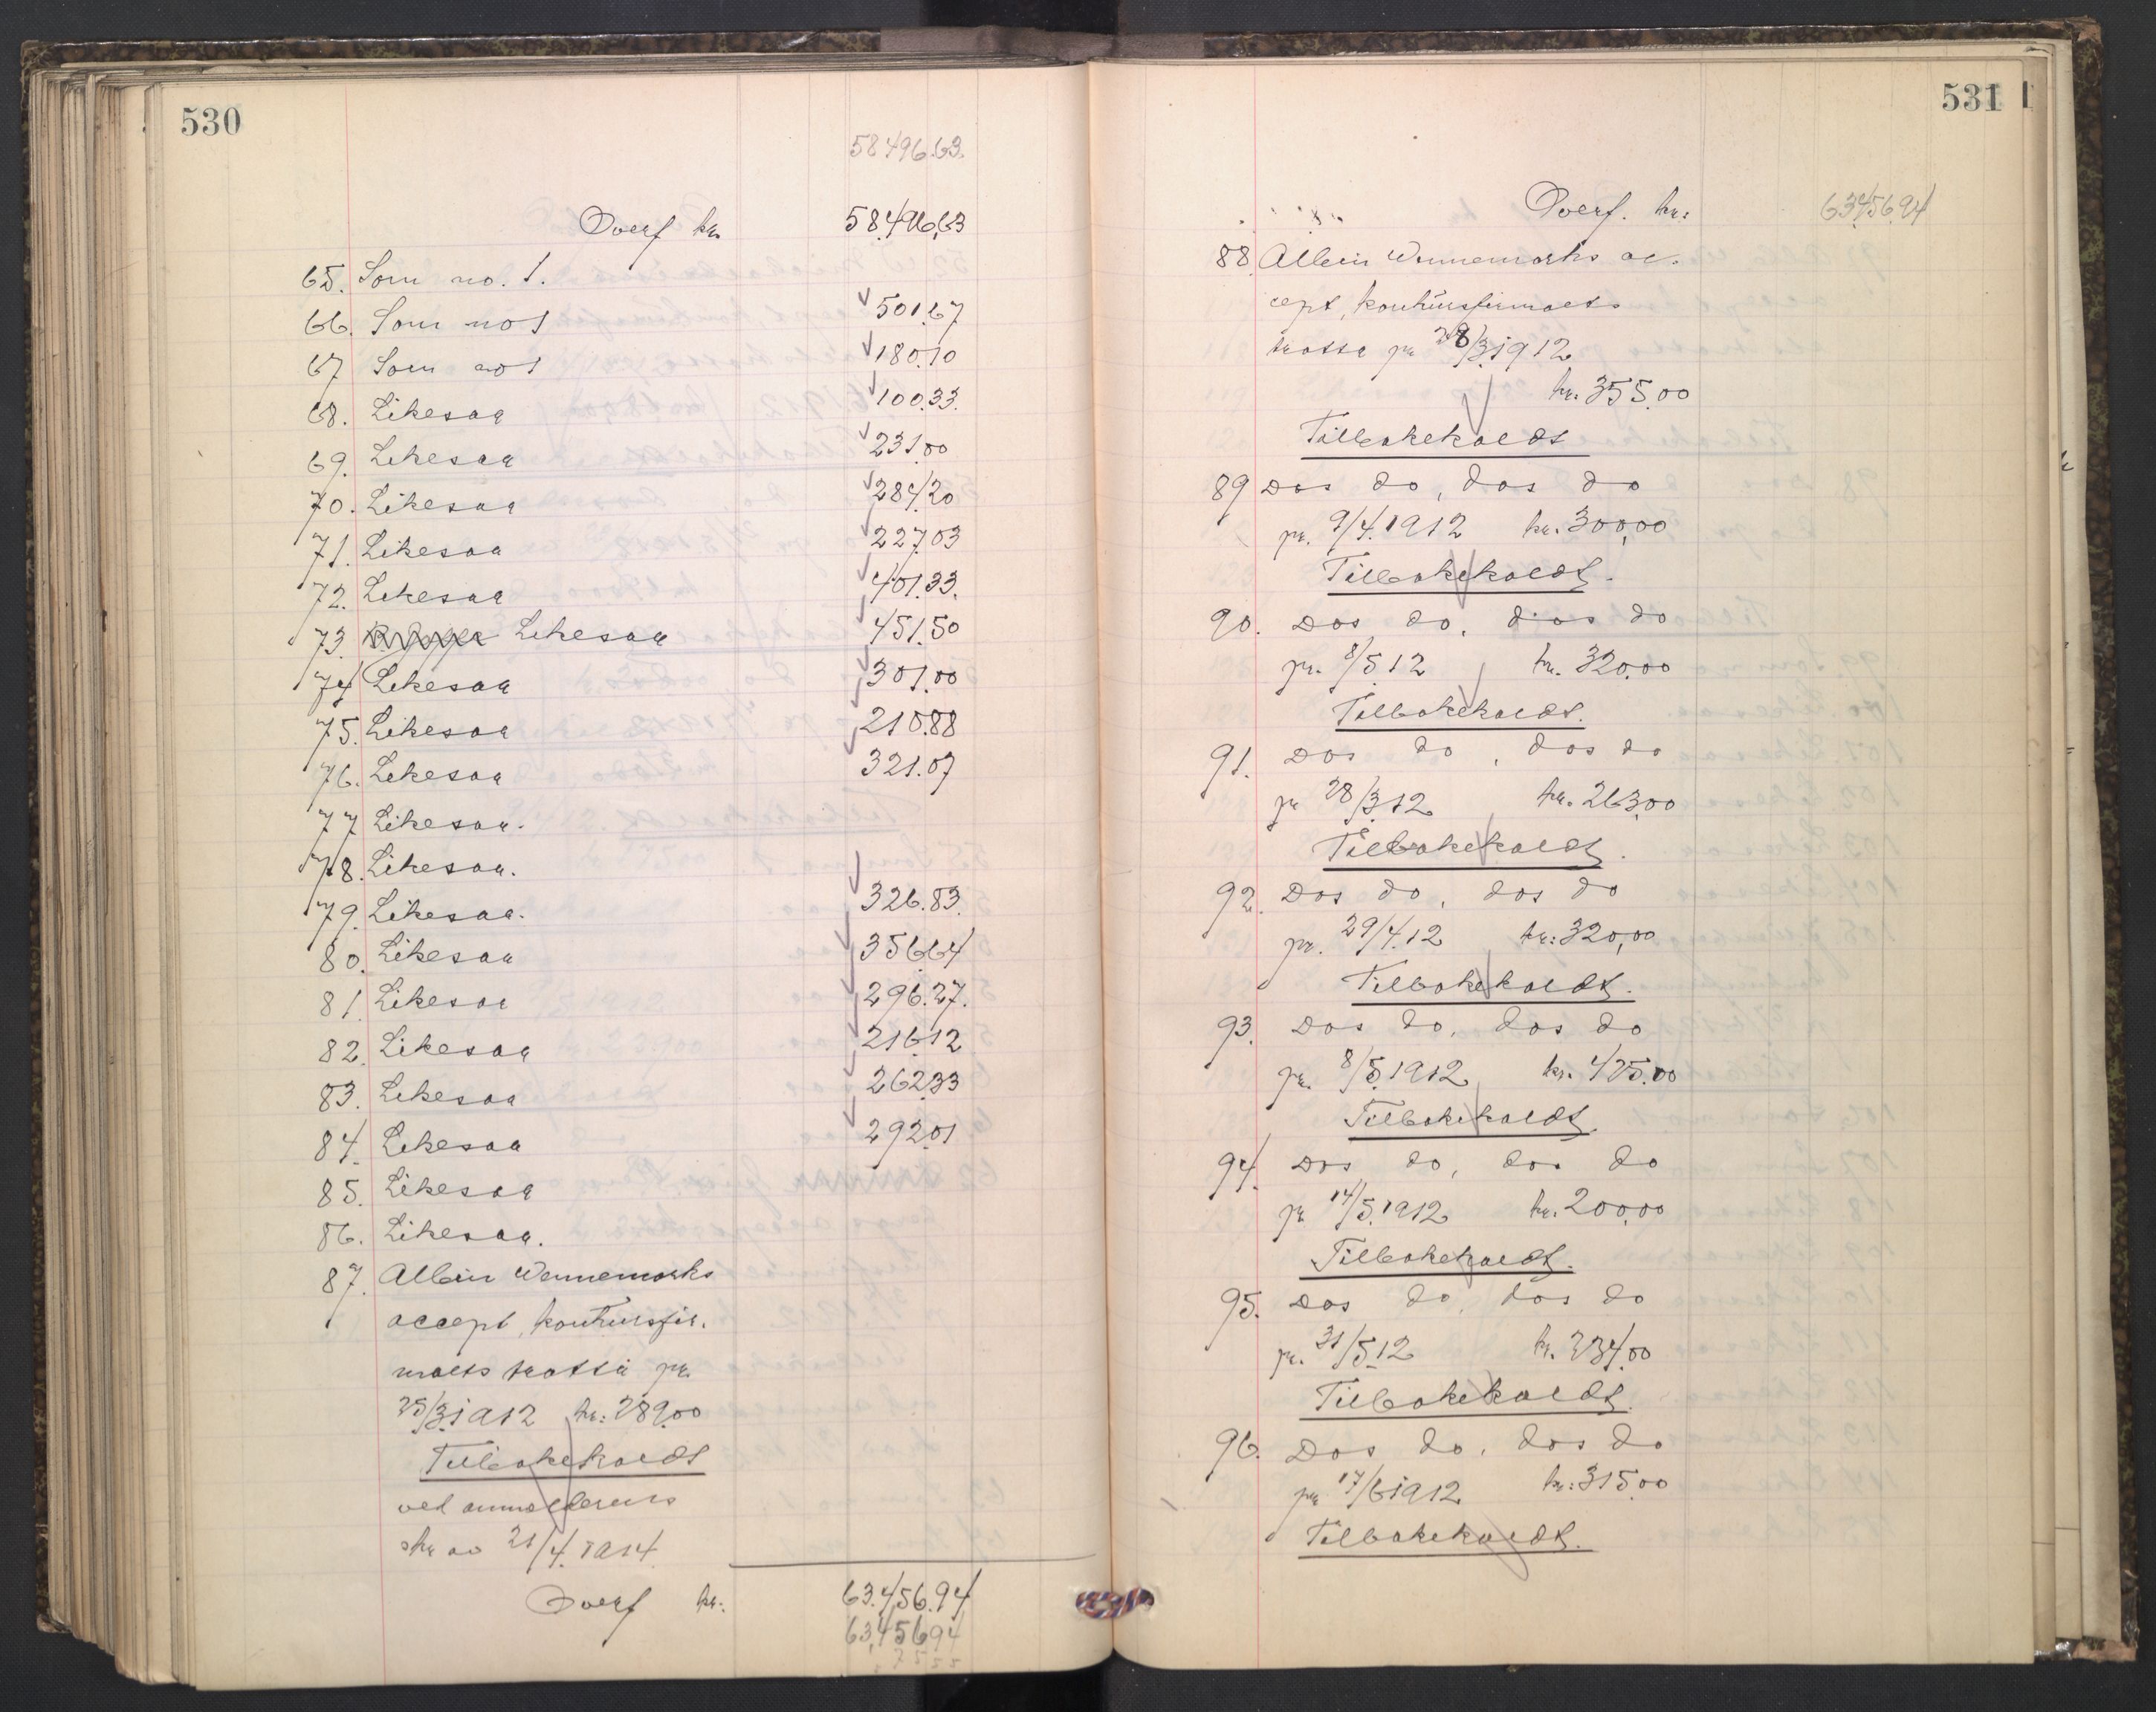 530
58496.63.
Overf kr. 58.496,63
65. Som no. 1.
66. Som no 1 501.67
67 Som no 1 180.10
68. Likesaa 100.33.
69. Likesaa 231.00
70. Likesaa 284.20
71. Likesaa 227.03
72. Likesaa 401.33.
73. Likesaa 451.50
74 Likesaa 301.00
75. Likesaa 210.88
76. Likesaa 321.07
77 Likesaa.
78. Likesaa.
79. Likesaa. 326.83.
80. Likesaa 356.64
81. Likesaa 296.27.
82. Likesaa 216.12
83. Likesaa 262.33
84. Likesaa 292.01
85. Likesaa
86. Likesaa.
87. Albin Wennemarks
accept, konkursfir.
maets tratta pr.
25/3.1912 kr: 289.00
Tilbakekaldt
ved anmelderens
skr av 21/4.1914.
Overf kr: 63.456.94
63,456 94
531
Overf. kr: 63456.94
88 Albin Wennemarks ac.
cept, konkursfirmaets
tratta pr 28/3.1912
kr. 355.00
Tilbakekaldt
89 Das do, das do
pr. 9/4.1912 kr. 300,00
Tilbakekaldt.
90. Das do, das do
pr. 8/5.12 kr. 320.00
Tilbakekaldt.
91. Das do, das do
pr 28/3.12 kr. 263,00
Tilbakekaldt.
92. Das do, das do
pr. 29/4.12 kr: 320,00
Tilbakekaldt.
93. Das do, das do
pr. 8/5.1912 kr. 425.00
Tilbakekaldt.
94. Das do, das do
pr 14/5.1912 kr. 200,00
Tilbakekaldt.
95. Das do, das do
pr. 31/5.12 kr. 234.00
Tilbakekaldt.
96. Das do, das do
pr 17/6 1912 kr: 315.00
Tilbakekaldt.